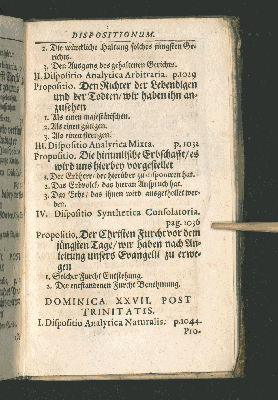 DISPOSITIONUM.
2. Die würckliche Haltung solches jüngsten Ge-
richts.
3. Den Ausgang des gehaltenen Gerichts.
II. Dispositio Analytica Arbitraria. p.1019
Propositio. Den Richter der Lebendigen
und der Todten/ wir haben ihn an-
zusehen
1. Als einen majestätischen.
2. Als einen gütigen.
3. Als einen strengen.
III. Dispositio Analytica Mixta. p. 1032
Propositio. Die himmlische Erbschafft/ es
wird uns hierbey vorgestellet
1. Der Erbherr/ der hierüber zu disponiren hat.
2. Das Erbvolck/ das hieran Anspruch hat.
3. Das Erbe/ das ihnen wird ausgetheilet wer-
den.
IV. Dispositio Synthetica Consolatoria.
pag. 1036
Propositio. Der Christen Furcht vor dem
jüngsten Tage/ wir haben nach An-
leitung unsers Evangelii zu erwe-
gen
1. Solcher Furcht Entstehung.
2. Der entstandenen Furcht Benehmung.
DOMINICA XXVII. POST
TRINITATIS.
I. Dispositio Analytica Naturalis. p.1044
Pro-